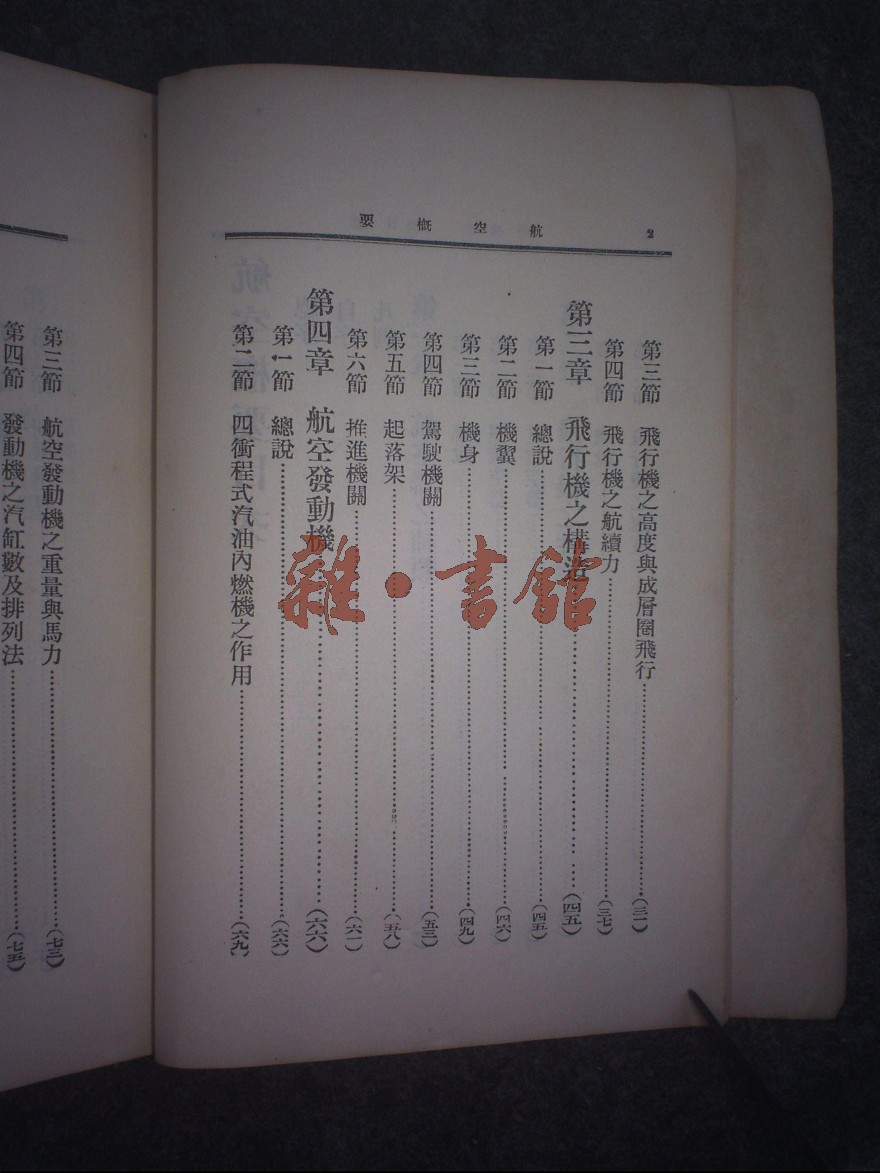 航空概要 2
第三節 飛行機之高度與成層圈飛行………(三一)
第四節 飛行機之航續力………(三七)
第三章 飛行機之構造………(四五)
第一節 總說………(四五)
第二節 機翼………(四六)
第三節 機身………(四九)
第四節 駕駛機關………(五三)
第五節 起落架………(五八)
第六節 推進機關………(六一)
第四章 航空發動機………(六六)
第一節 總說………(六六)
第二節 四衝程式汽油內燃機之作用………(六九)
第三節 航空發動機之重量與馬力………(七三)
第四節 發動機之汽缸數及排列法………(七五)
雜·書館